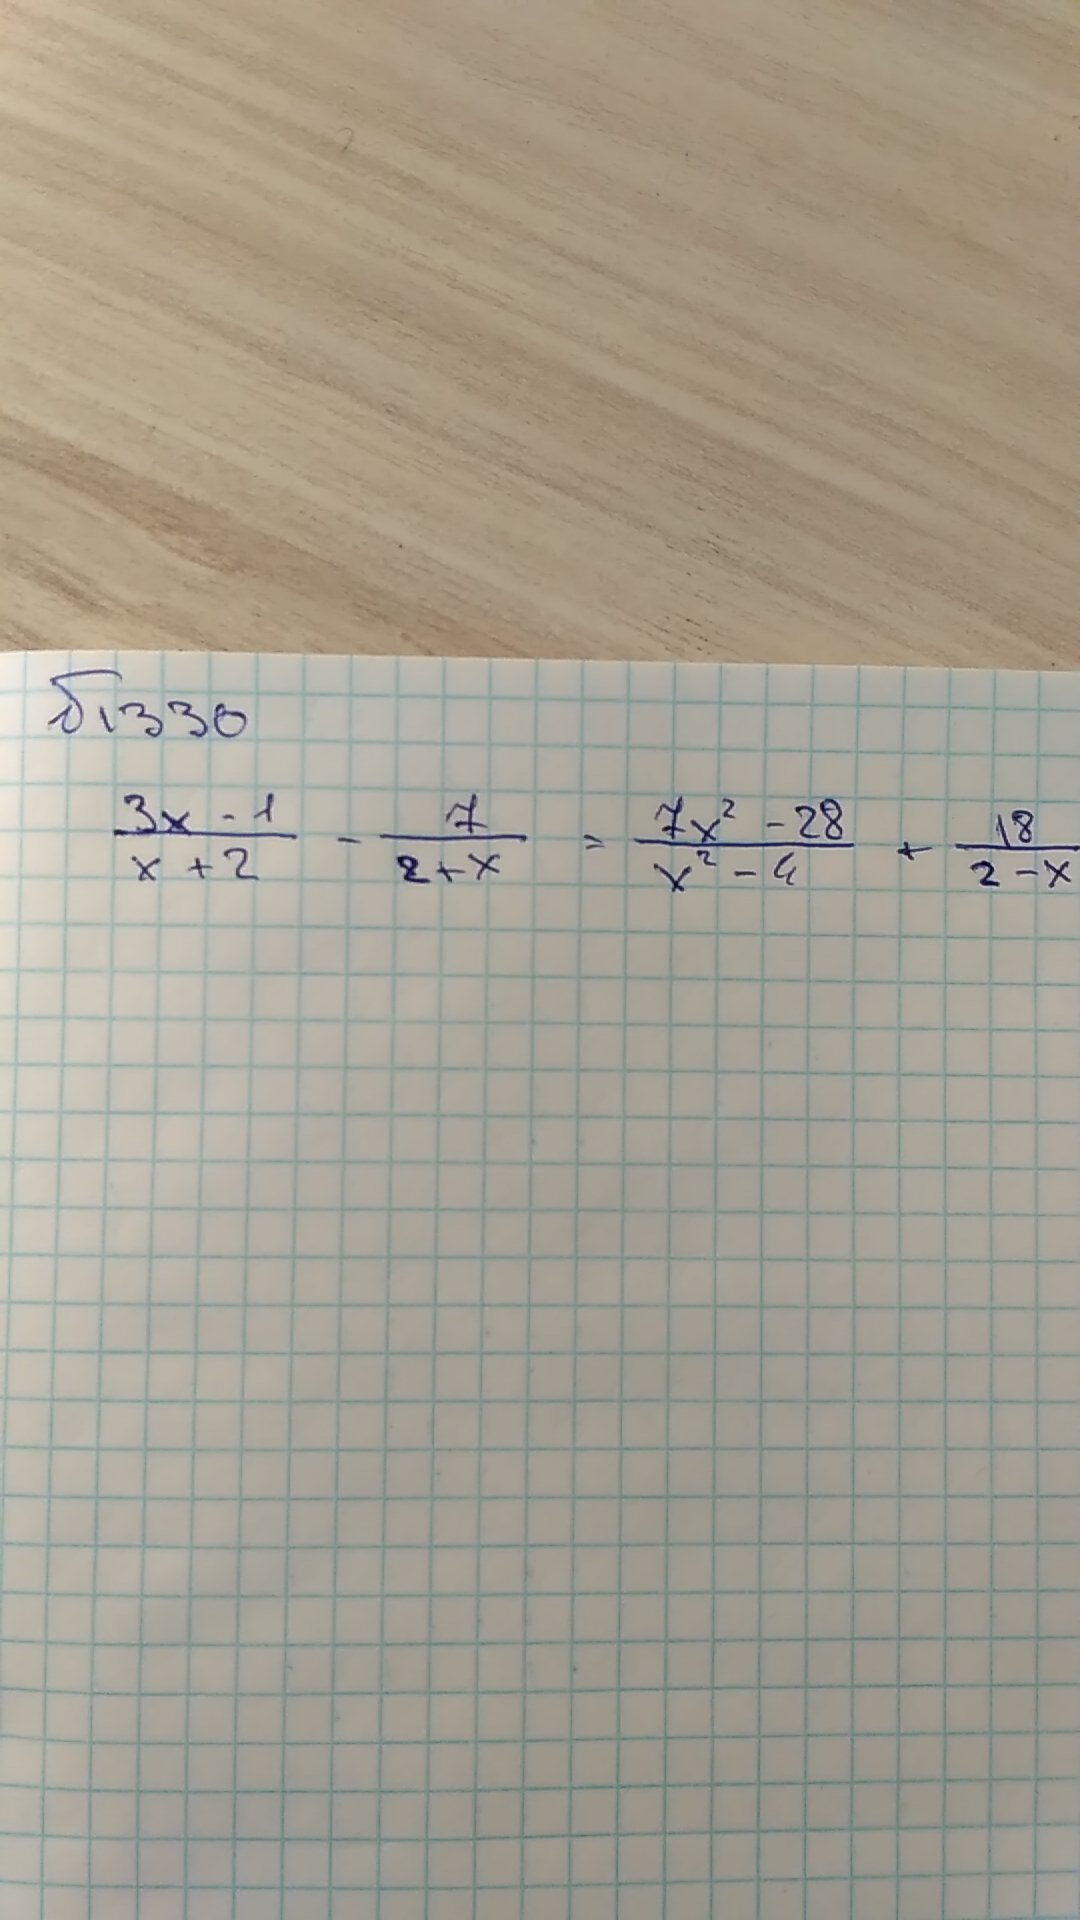 б1330
(3x - 1)/(x + 2) - 7/(2 + x) = (7x² - 28)/(x² - 4) + 18/(2 - x)